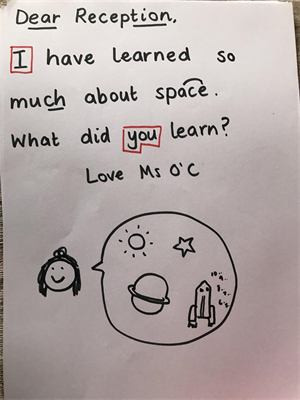 Dear Reception,
I have learned so
much about space.
What did you learn?
Love Ms O'C